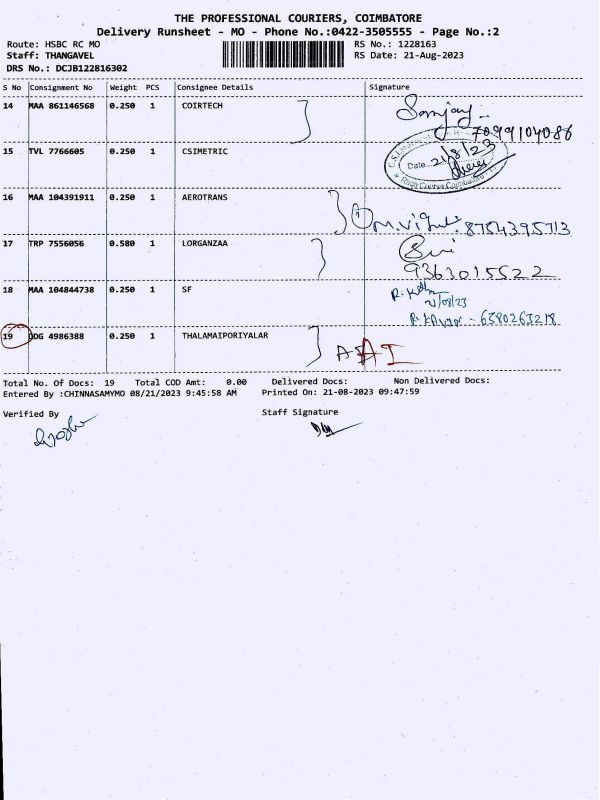 THE PROFESSIONAL COURIERS, COIMBATORE
Delivery Runsheet - MO - Phone No.:0422-3505555 - Page No.:2
Route: HSBC RC MO RS No.: 1228163
Staff: THANGAVEL RS Date: 21-Aug-2023
DRS No.: DCJB122816302
S No Consignment No Weight PCS Consignee Details Signature
14 MAA 861146568 0.250 1 COIRTECH Sanjay
7099104086
15 TVL 7766605 0.250 1 CSIMETRIC Date 21/8/23
Race Course, Coimbatore
16 MAA 104391911 0.250 1 AEROTRANS
8754395713
17 TRP 7556056 0.580 1 LORGANZAA
9363015522
18 MAA 104844738 0.250 1 SF
21/08/23
6380263218
19 DDG 4986388 0.250 1 THALAMAIPORIYALAR
Total No. Of Docs: 19 Total COD Amt: 0.00 Delivered Docs: Non Delivered Docs:
Entered By :CHINNASAMYMO 08/21/2023 9:45:58 AM Printed On: 21-08-2023 09:47:59
Verified By Staff Signature